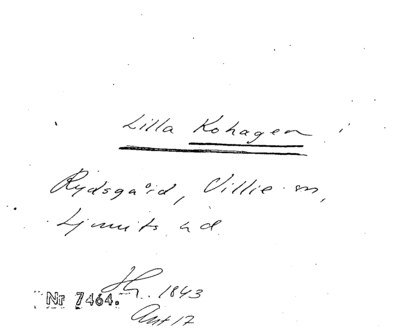 Lilla Kohagen i
Rydsgård, Villie sn,
Ljunits hd
Nr 7464. 1843
Ant 17